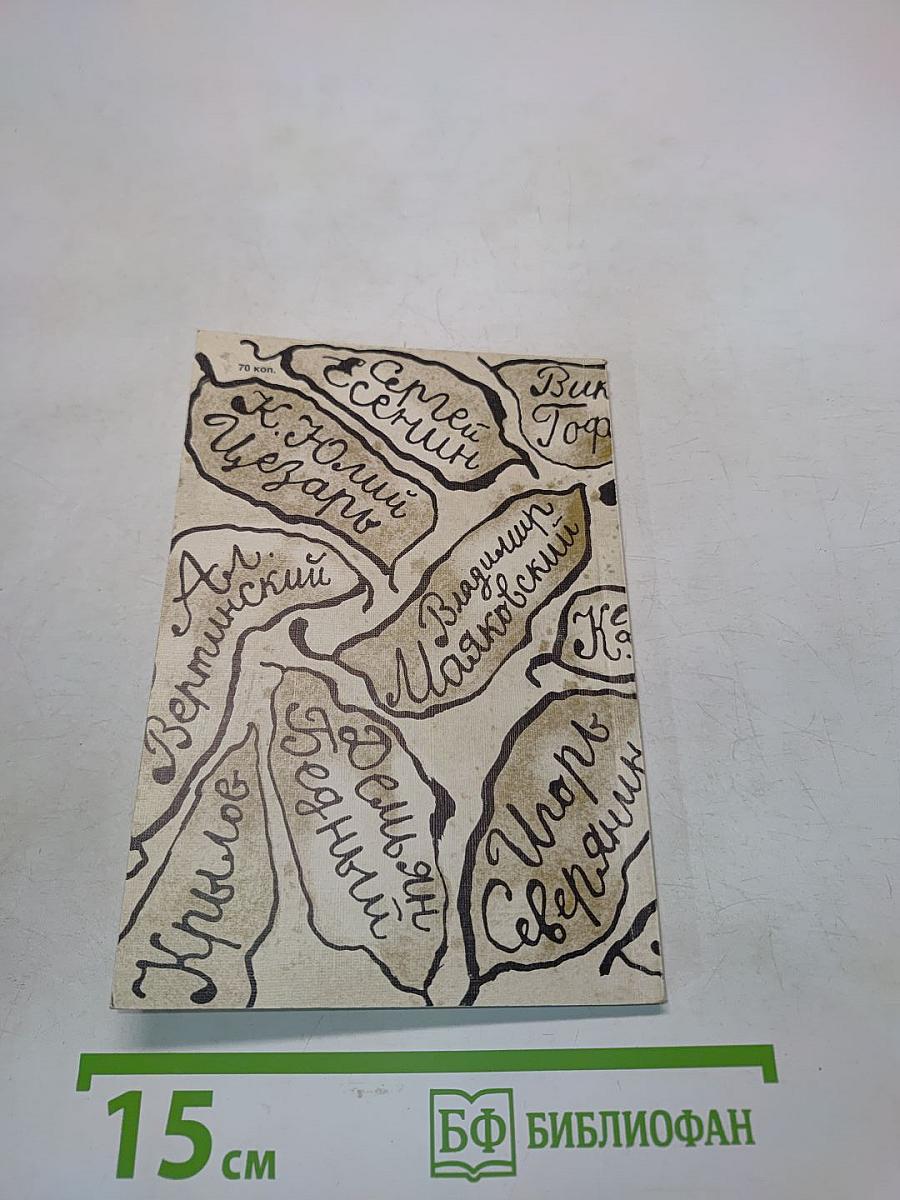 70 коп.
Сергей
Есенин
Вик
Гоф
К. Юлий
Цезарь
Владимир
Маяковский
Ал.
Вертинский
Демьян
Бедный
Игорь
Северянин
Крылов
15 см
БФ БИБЛИОФАН